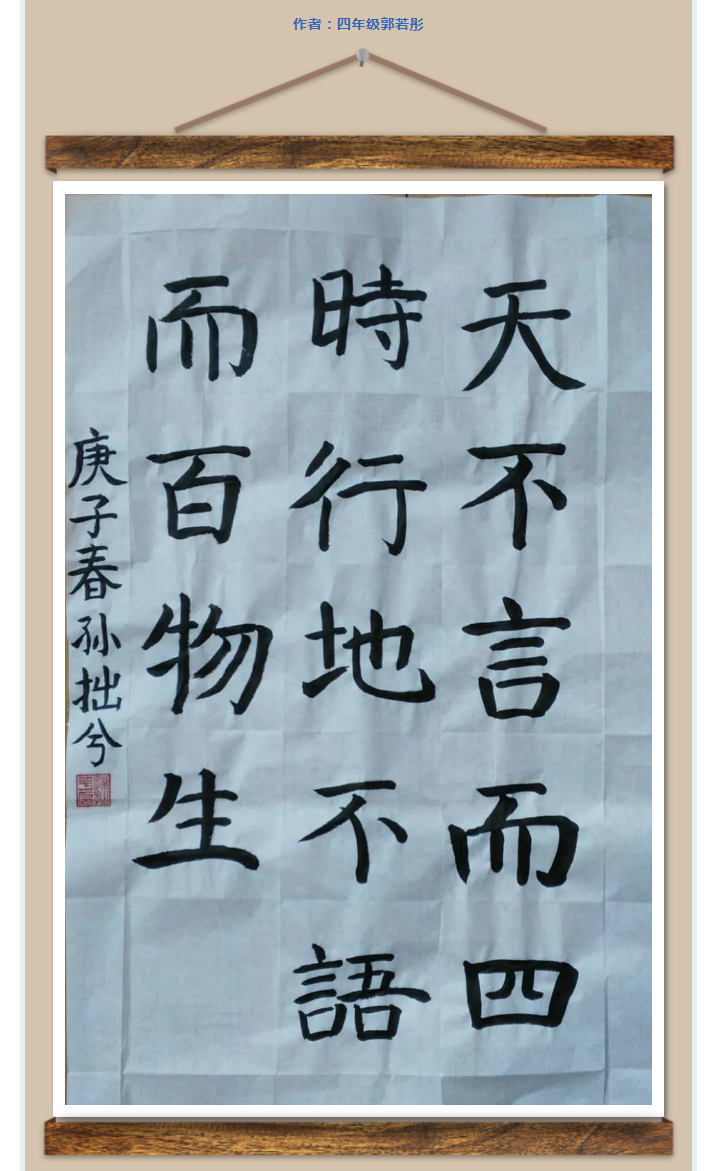 作者：四年级郭若彤
天不言而四
時行地不語
而百物生
庚子春孙拙兮